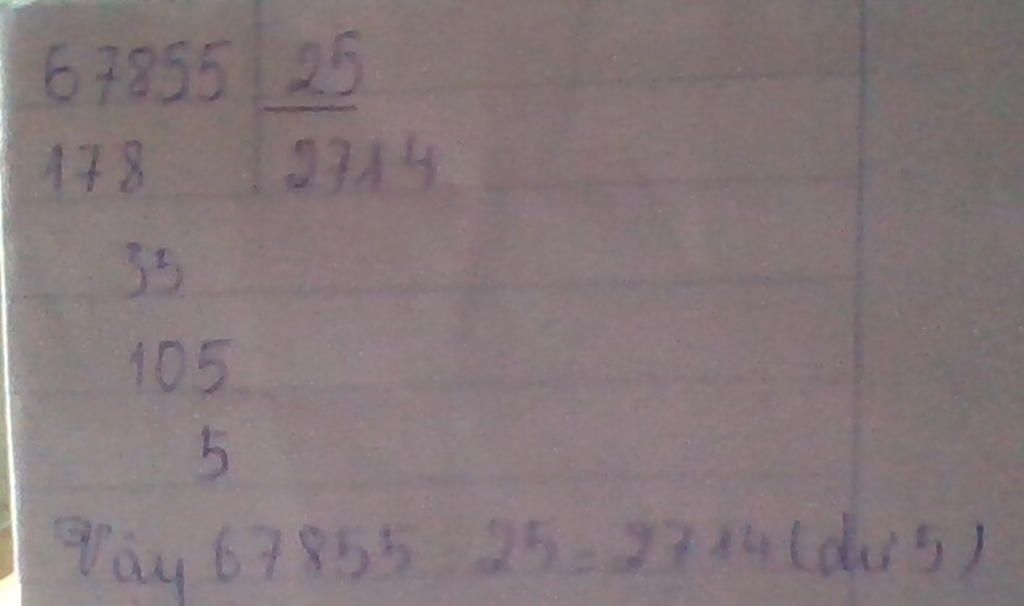 67855 25
178 2714
35
105
5
Vậy 67855 25 = 2714 (dư 5)